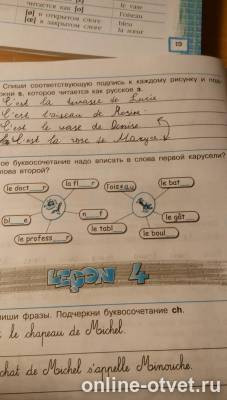 читается как [ɔ]
[œ] в открытом слоге
[ø] в закрытом слоге
le vase
l'oiseau
bleu
la sœur
19
Спиши соответствующую подпись к каждому рисунку и под-
s, которое читается как русское з.
C'est la de Lucie
C'est de Rosin.
C'est le vase de Denise
C'est la rose de
ое буквосочетание надо вписать в слова первой карусели?
лова второй?
le doct r
la fl r
l'oiseau
le bat
bl e
n f
le gât
le profess r
le tabl
le boul
LEÇON 4
пиши фразы. Подчеркни буквосочетание ch.
t le chapeau de Michel.
chat de Michel s'appelle Minouche.
online-otvet.ru